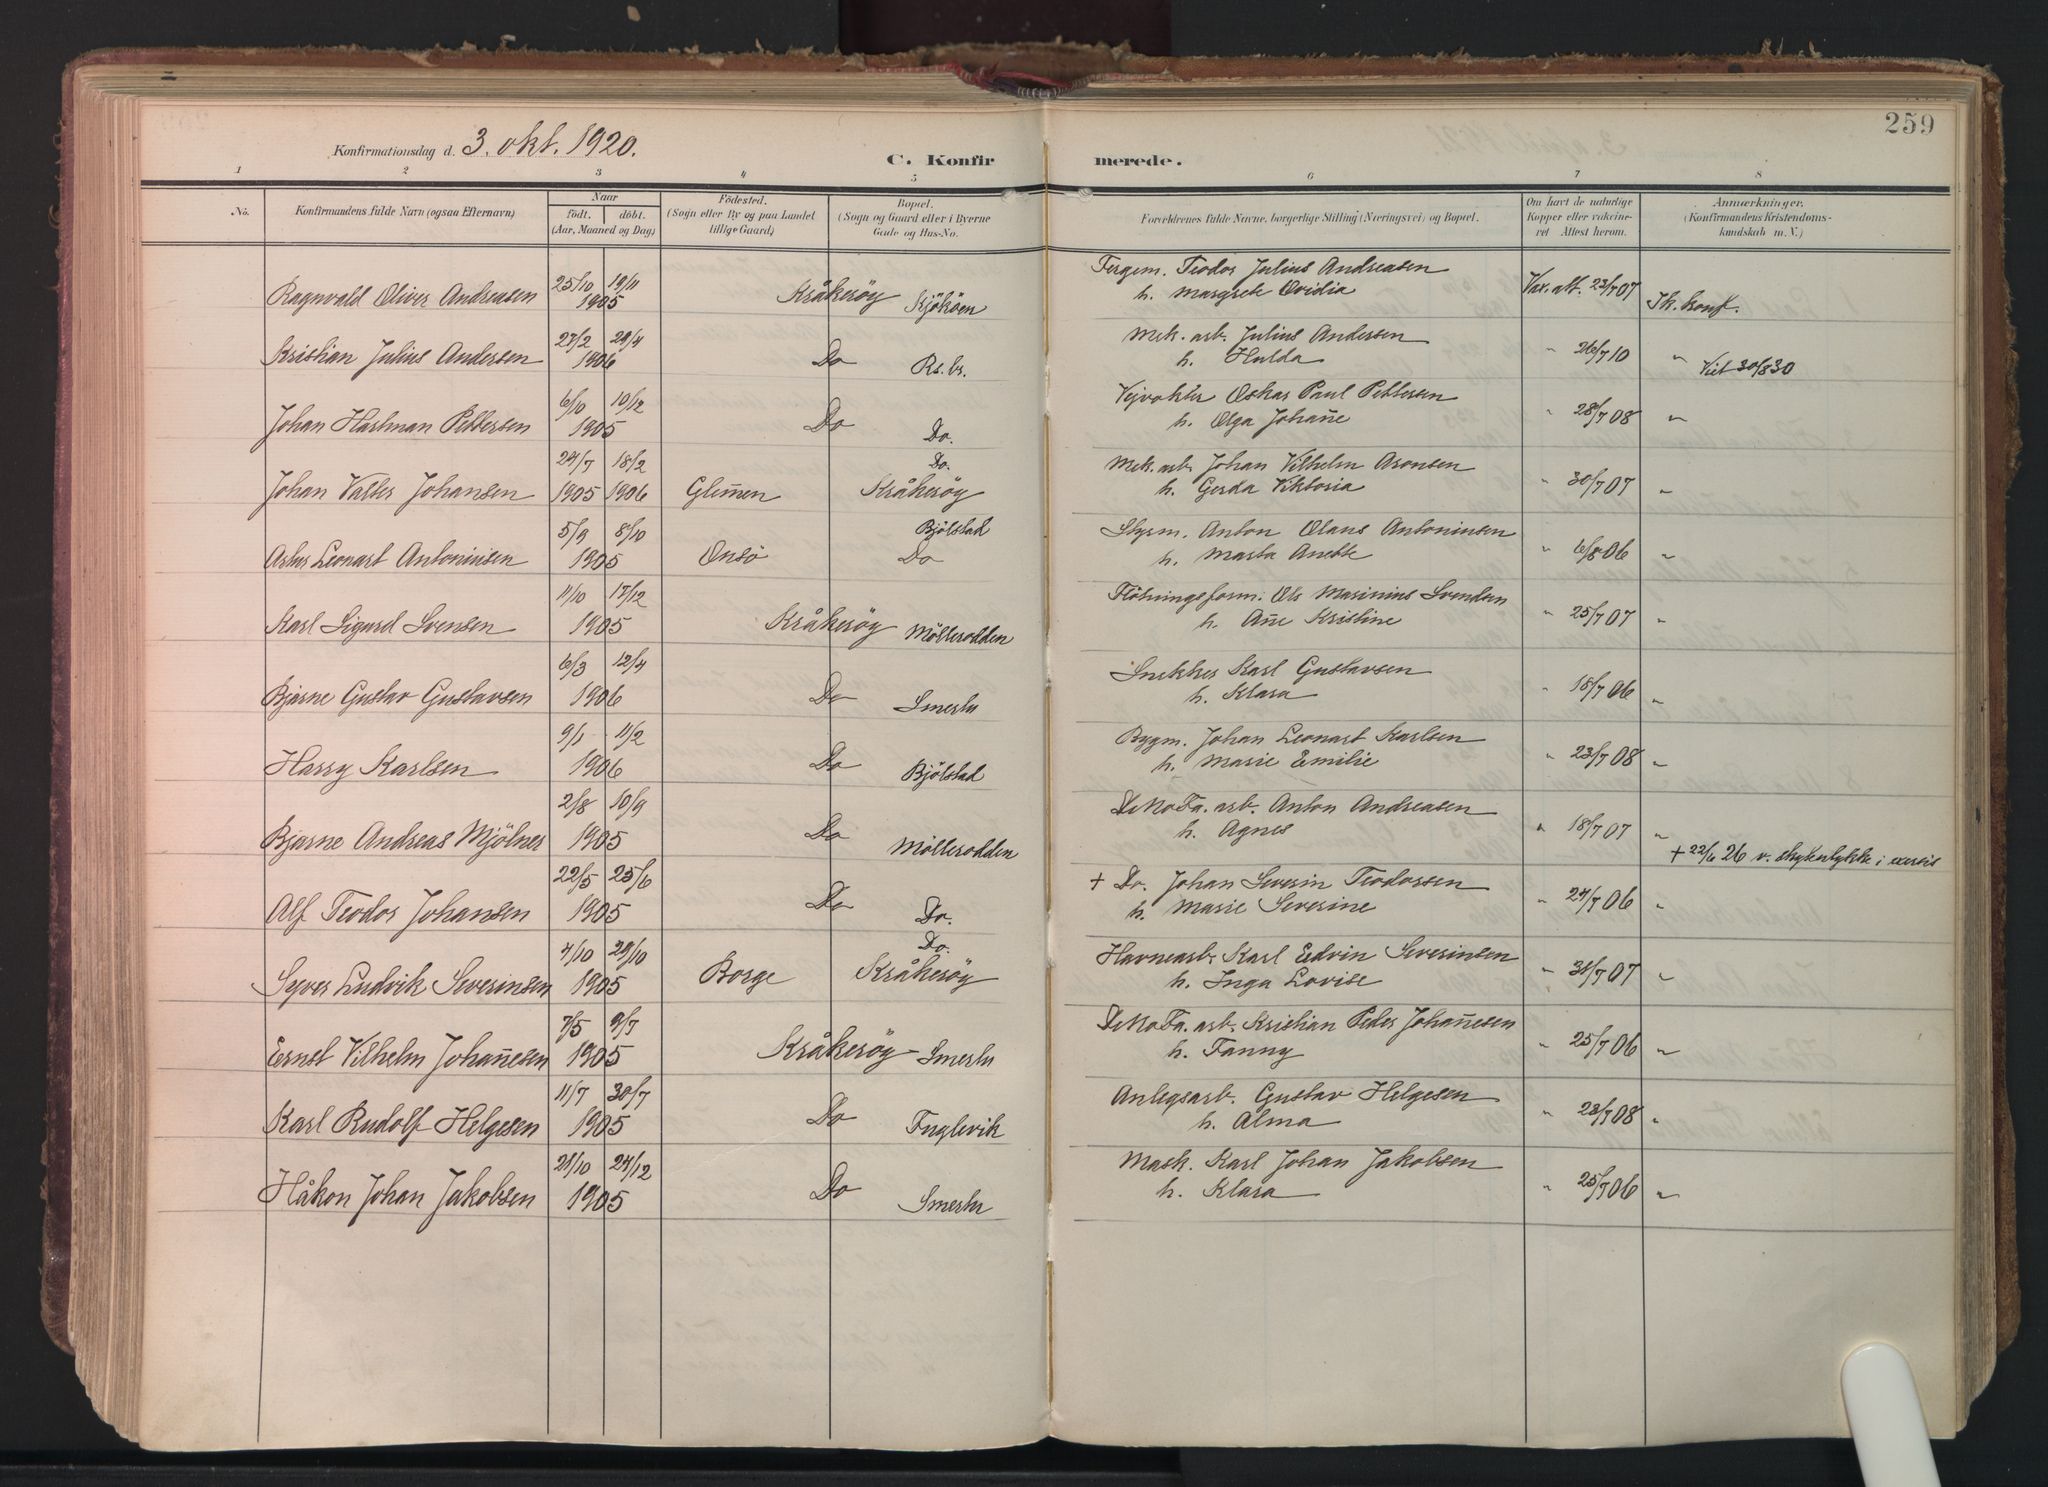 259
Konfirmationsdag d. 3. okt. 1920.
C. Konfirmerede.
1 2 3 4 5 6 7 8
No. Konfirmandens fulde Navn (ogsaa Efternavn) Naar født. døbt. (Aar, Maaned og Dag) Fødested. (Sogn eller By og paa Landet tillige Gaard) Bopæl. (Sogn og Gaard eller i Byerne Gade og Hus-No. Forældrenes fulde Navne, borgerlige Stilling (Næringsvei) og Bopæl. Om havt de naturlige Kopper eller vaccineret Attest herom. Anmærkninger. (Konfirmandens Kristendomskundskab m. V.)
25/10 19/11 Fergem. Teodor Julius Andreasen
Ragnvald Oliver Andreasen 1905 Kråkeröy Kjököen h. Margrete Ovidia Vax. att. 23/7 07 Ik. konf.
27/2 29/4 Mek. arb. Julius Andersen
Kristian Julius Andersen 1906 Do Rs. br. h. Hulda " 26/7 10 " Viet 30/8 30
6/10 10/12 Vejvokter Oskar Paul Pettersen
Johan Hartman Pettersen 1905 Do Do. h. Olga Johañe " 28/7 08 "
24/7 18/2 Do. Mek. arb. Johan Vilhelm Aronsen
Johan Valter Johansen 1905 1906 Glem̄en Kråkeröy h. Gerda Viktoria " 30/7 07 "
5/9 8/10 Bjölstad Styrm. Anton Olaus Antoninsen
Leonart Antoninsen 1905 Onsö Do h. Marta Anette " 6/8 06 "
11/10 17/12 Flötningsform. Ole Marinius Svendsen
Karl Sigurd Svensen 1905 Kråkeröy Möllerodden h. Añe Kristine " 25/7 07 "
6/3 12/4 Snekker Karl Gustavsen
Bjarne Gustav Gustavsen 1906 Do Smertu h. Klara " 18/7 06 "
9/1 11/2 Bygm. Johan Leonart Karlsen
Harry Karlsen 1906 Do Bjölstad h. Marie Emilie " 23/7 08 "
2/8 10/9 DeNoFa. arb. Anton Andreasen
Bjarne Andreas Mjölner 1905 Do Möllerodden h. Agnes " 18/7 07 "
+ 22/6 26 v. skytulykke i exersis
22/5 25/6 + Do. Johan Severin Teodorsen
Alf Teodor Johansen 1905 Do Do. h. Marie Severine " 24/7 06 "
4/10 29/10 Do. Havnearb. Karl Edvin Severinsen
Syver Ludvik Severinsen 1905 Borge Kråkeröy h. Inga Lovise " 31/7 07 "
7/5 9/7 DeNoFa. arb. Kristian Peder Johañesen
Ernst Vilhelm Johañesen 1905 Kråkeröy Smertu h. Fanny " 25/7 06 "
11/7 30/7 Anlegsarb. Gustav Helgesen
Karl Rudolf Helgesen 1905 Do Fuglevik h. Alma " 23/7 08 "
21/10 24/12 Mask. Karl Johan Jakobsen
Håkon Johan Jakobsen 1905 Do Smertu h. Klara " 25/7 06 "